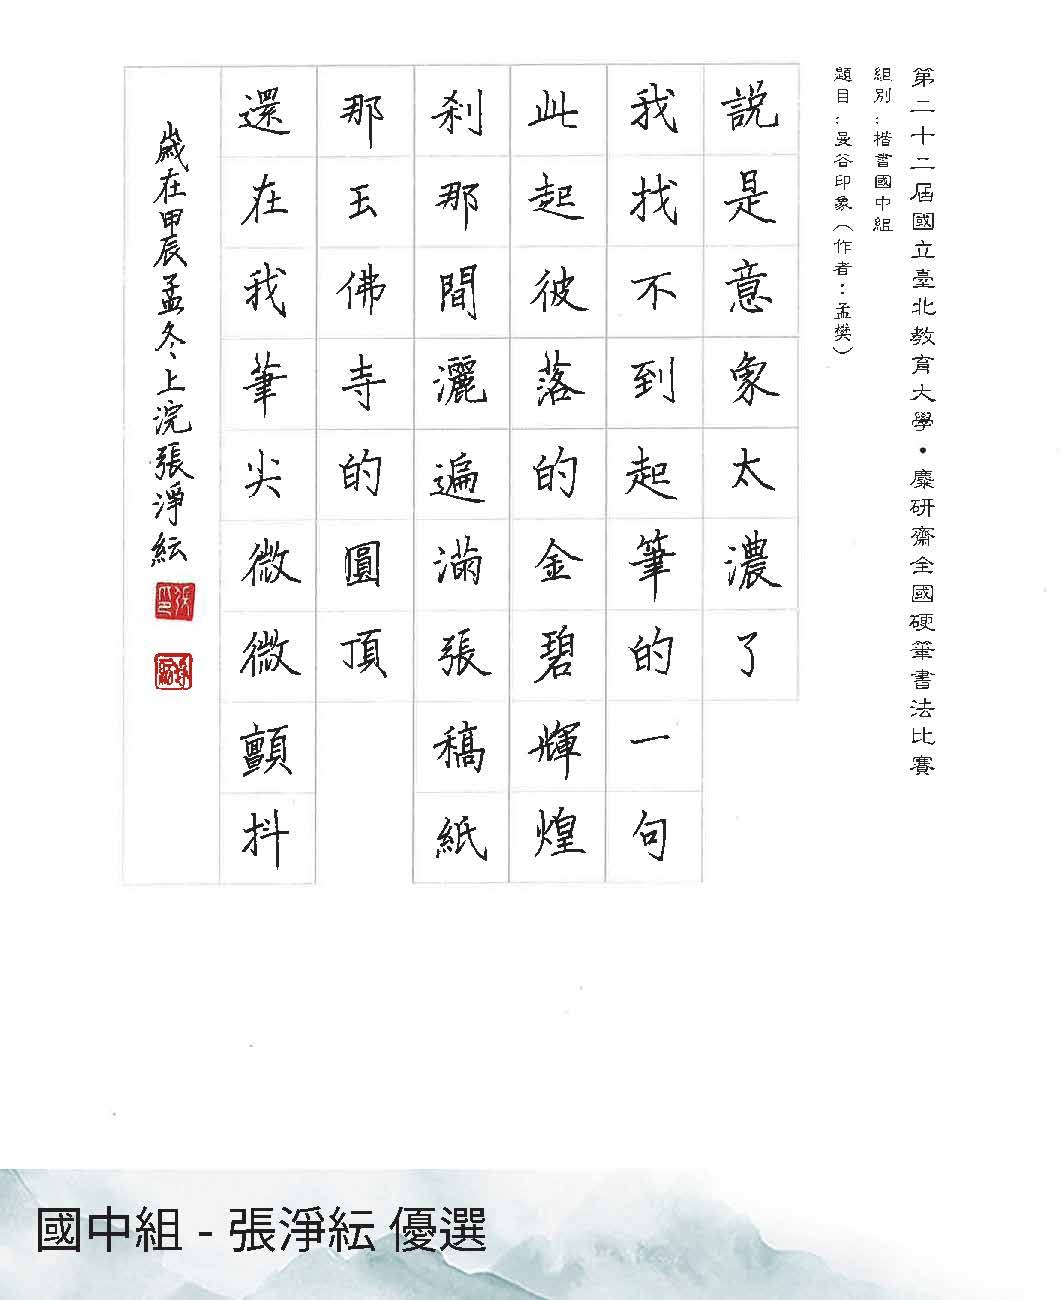 第二十二屆國立臺北教育大學・麋研齋全國硬筆書法比賽
組別：楷書國中組
題目：曼谷印象（作者：孟樊）
說是意象太濃了
我找不到起筆的一句
此起彼落的金碧輝煌
剎那間灑遍滿張稿紙
那玉佛寺的圓頂
還在我筆尖微微顫抖
歲在甲辰孟冬上浣張淨紜
國中組 - 張淨紜 優選